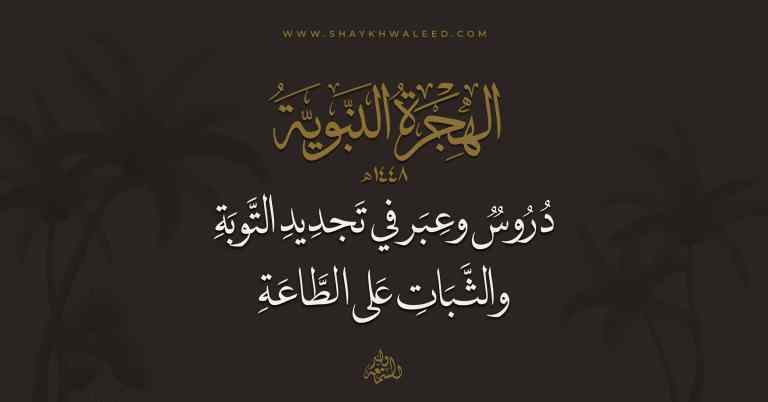 WWW.SHAYKHWALEED.COM
الهِجْرَةُ النَّبَوِيَّةُ
١٤٤٨هـ
دُرُوسٌ وعِبَر في تَجدِيدِ التَّوبَةِ
والثَّبَاتِ عَلى الطَّاعَةِ